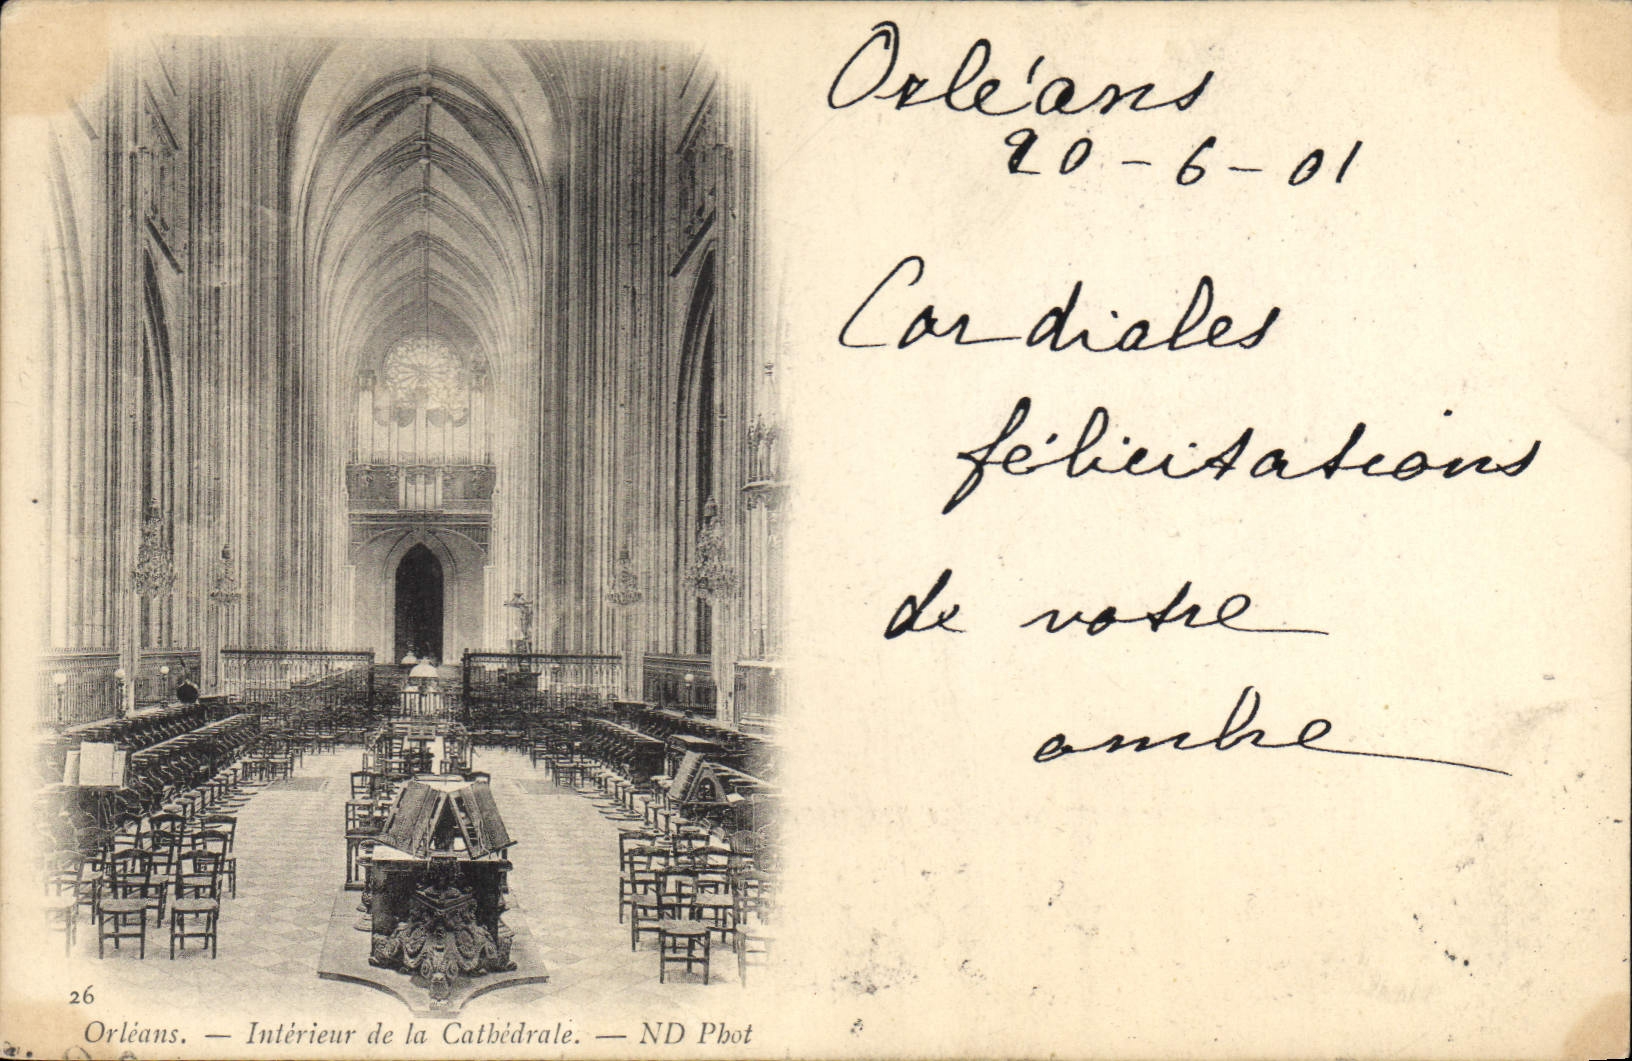 Orléans
20-6-01
Cordiales
félicitations
de votre
ombre
26
Orléans. — Intérieur de la Cathédrale. — ND Phot